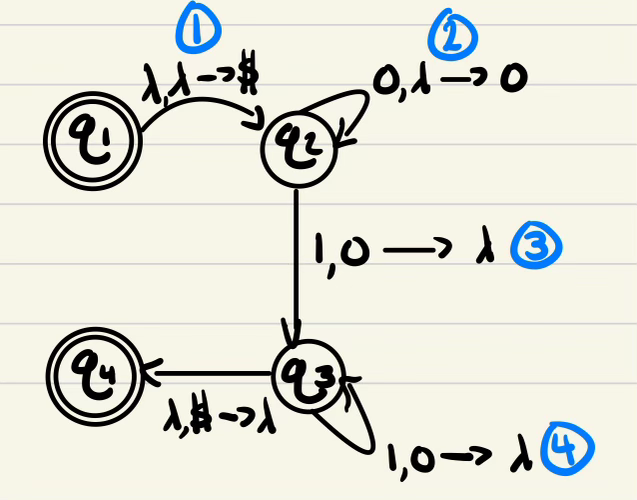 ① ②
λ,λ→$ 0,λ→0
q1 q2
1,0→λ ③
q4 q3
λ,$→λ
1,0→λ ④